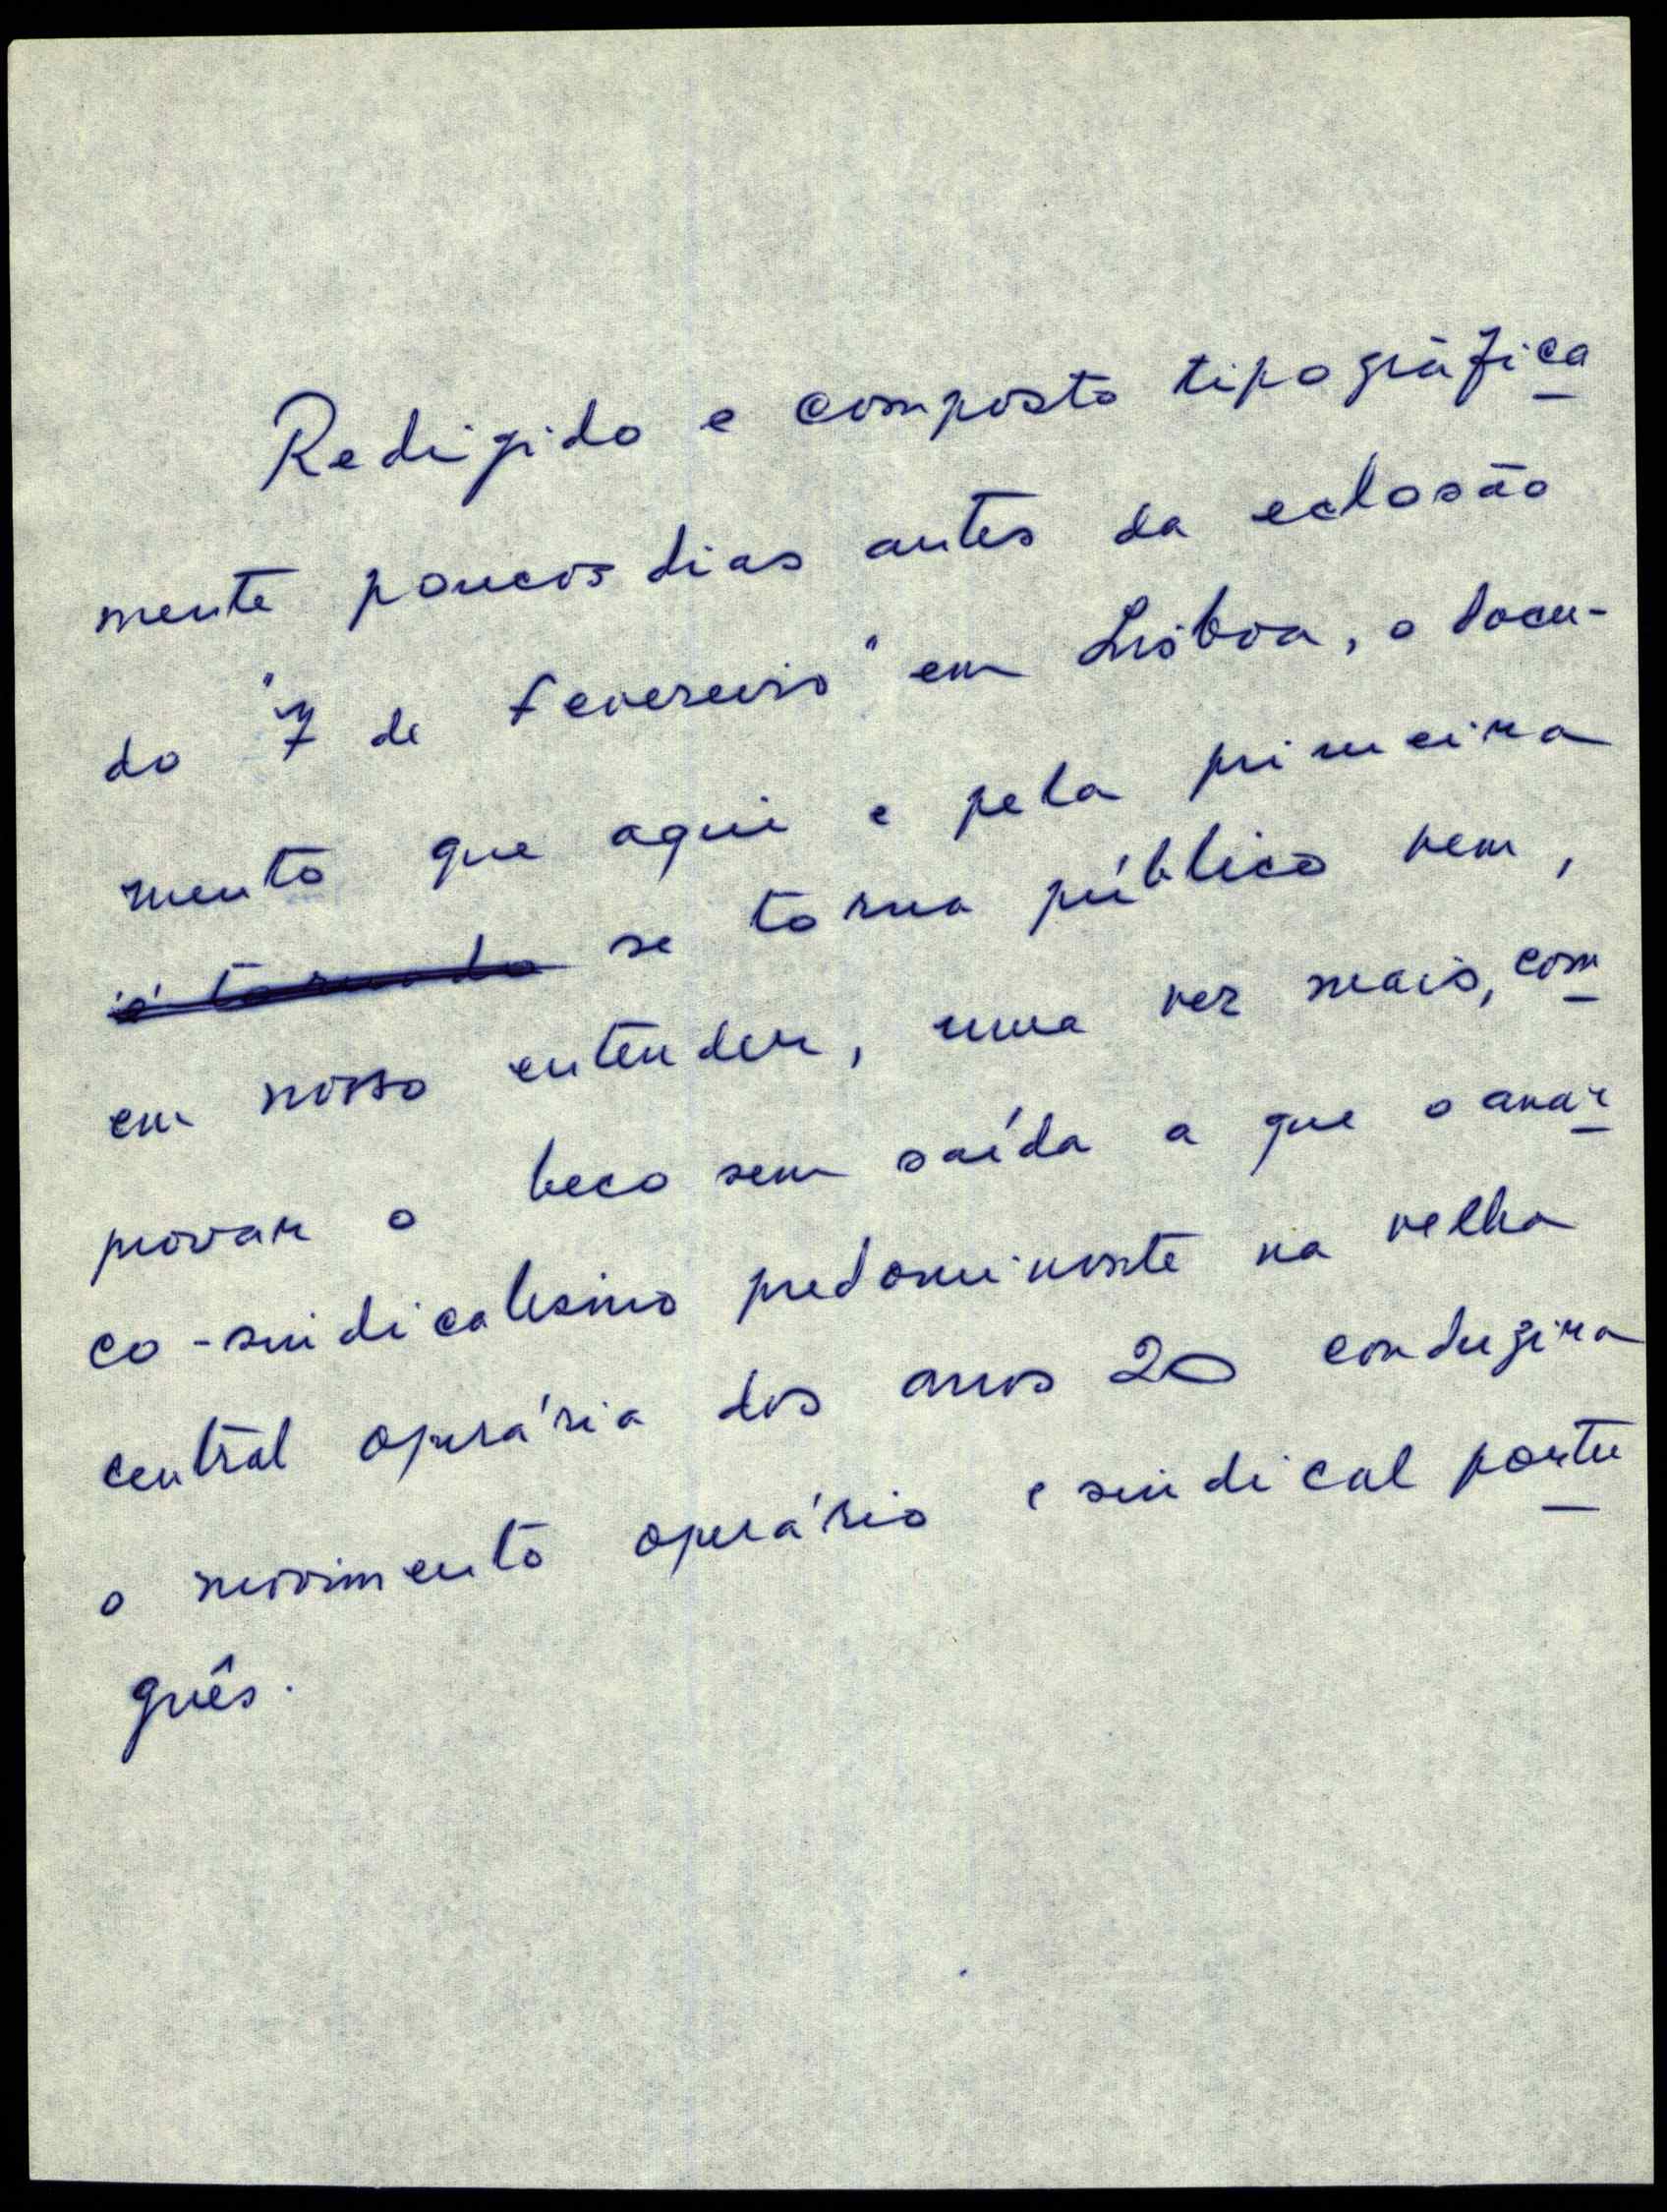 Redigido e composto tipográfica
mente poucos dias antes da eclosão
do "7 de Fevereiro" em Lisboa, o docu-
mento que aqui e pela primeira
é tornado se torna público vem,
em nosso entender, uma vez mais, com
provar o beco sem saída a que o anar
co-sindicalismo predominante na velha
central operária dos anos 20 conduzira
o movimento operário e sindical portu
guês.